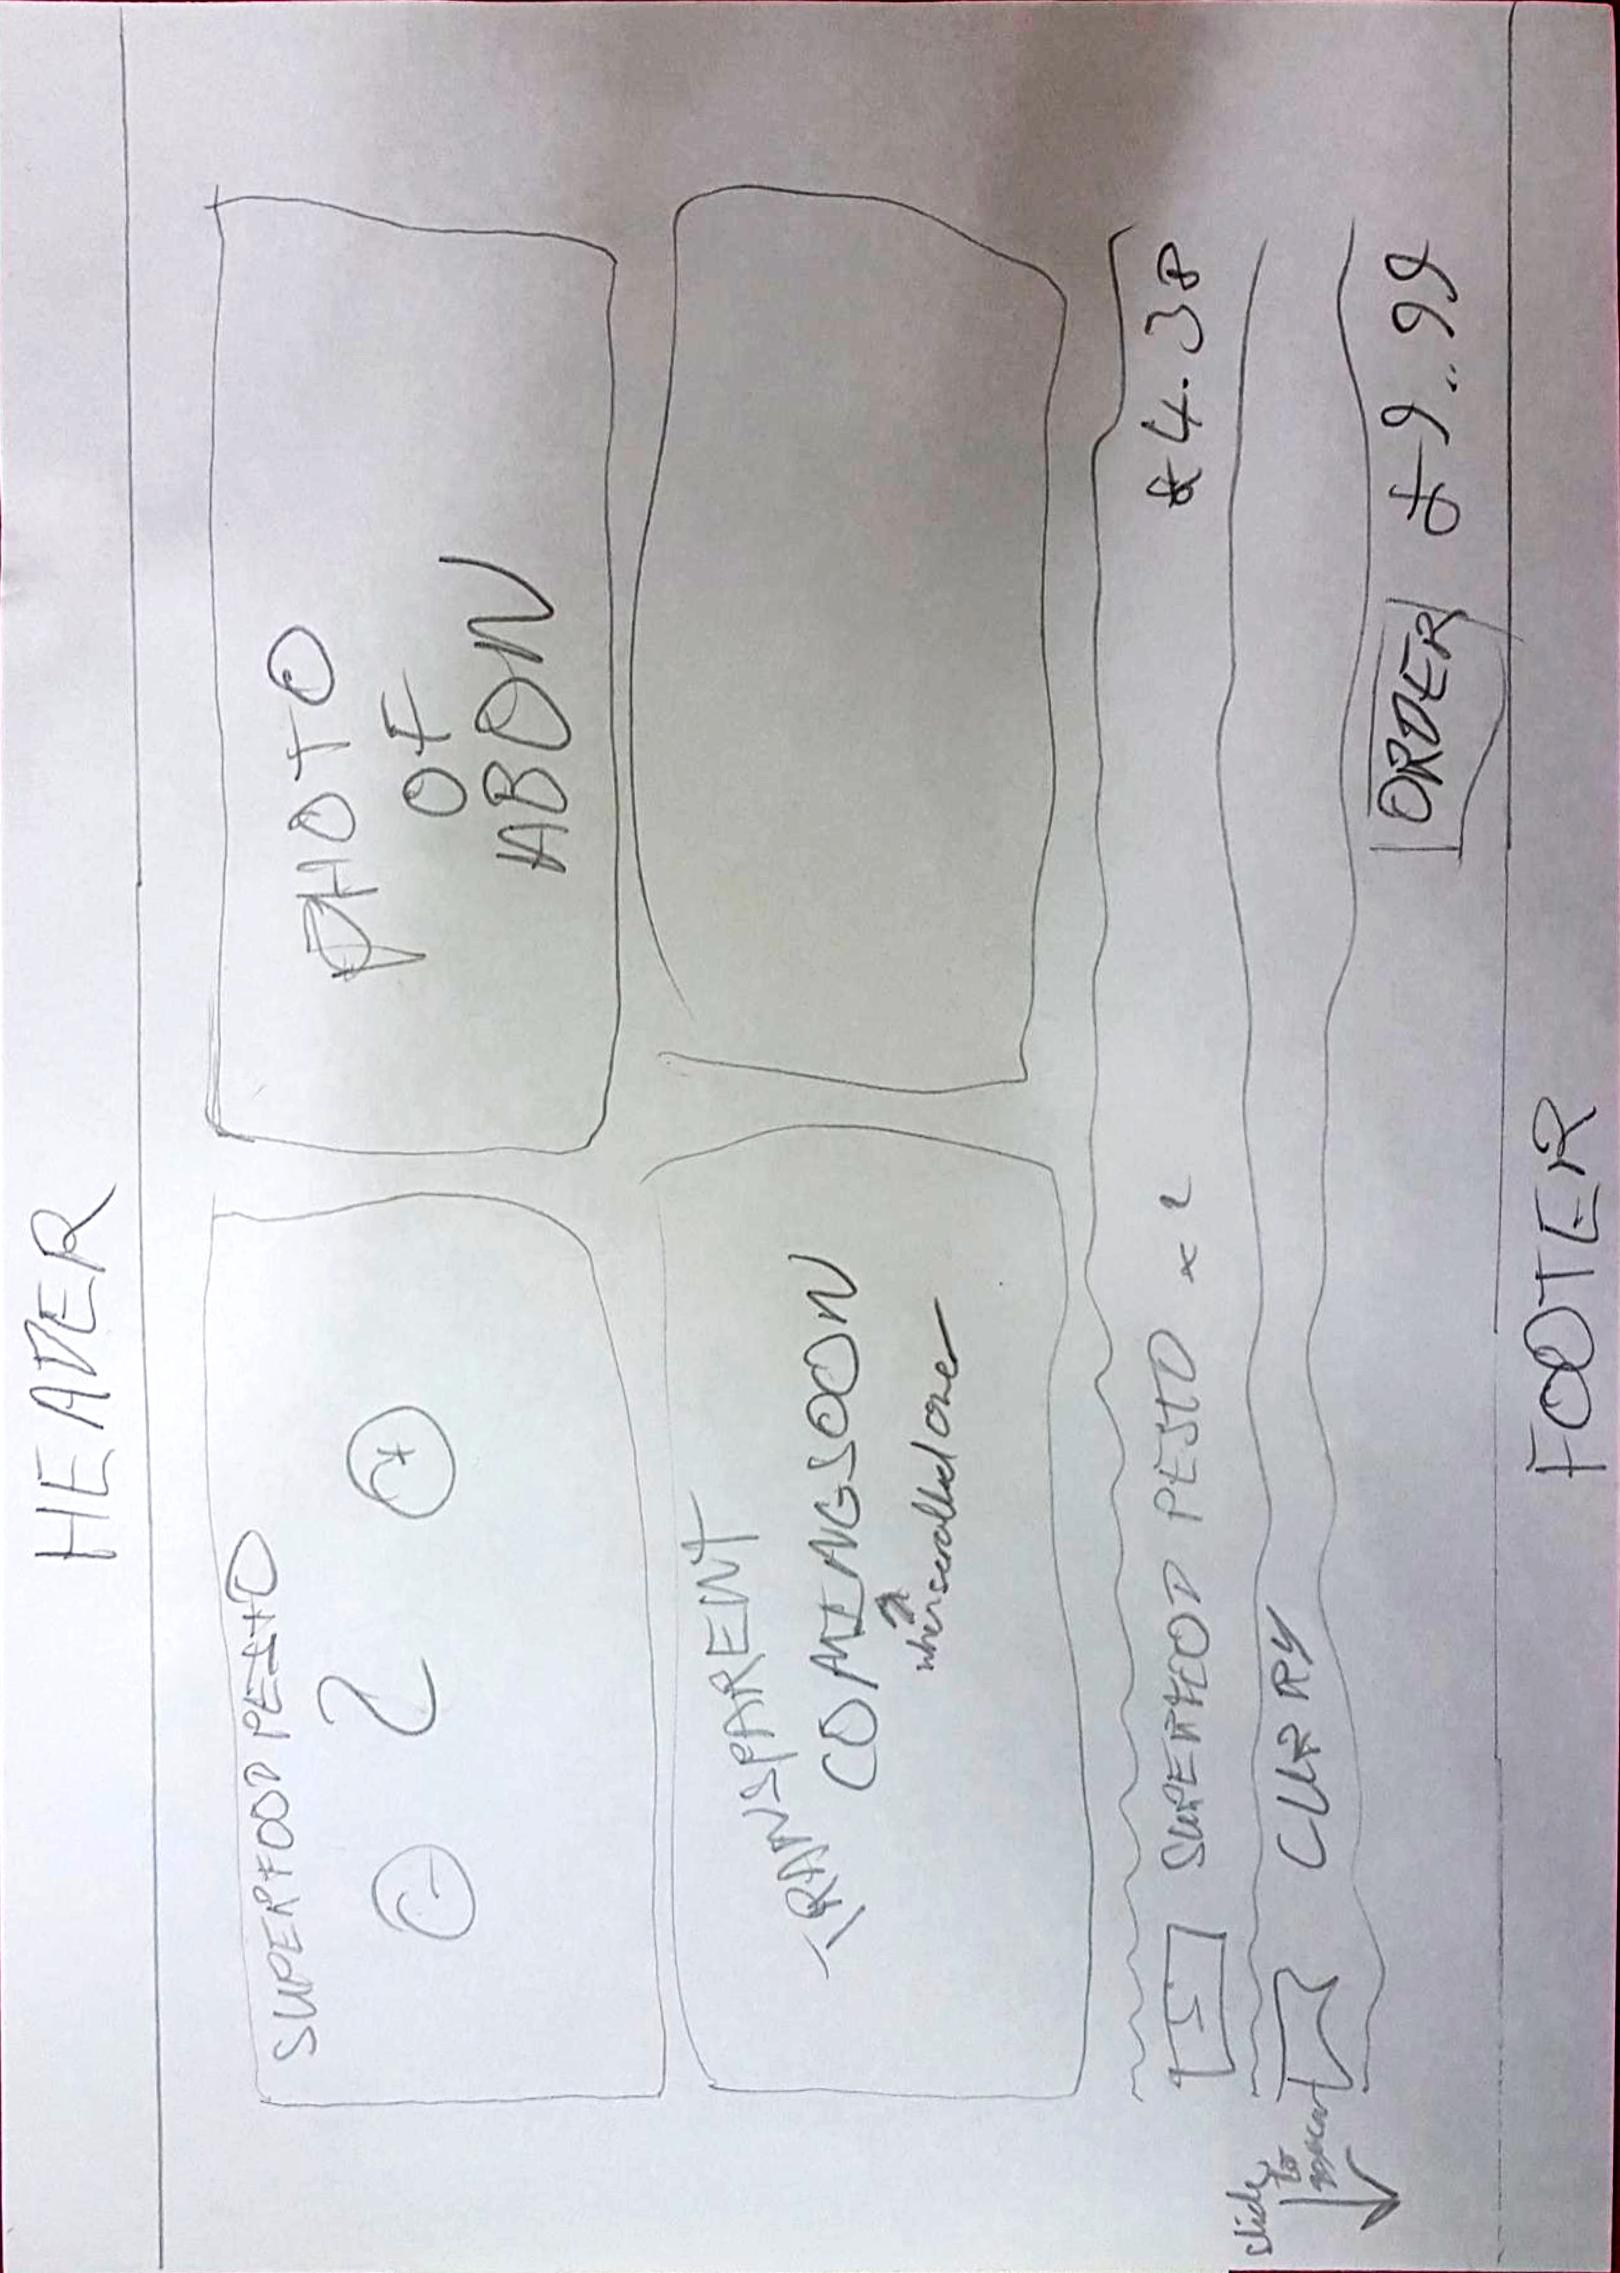 HEADER
SUPERFOOD PESTO
- 2 +
PHOTO
OF
ABON
TRANSPARENT
COMING SOON
when scrolled over
S SUPERFOOD PESTO x 2 £4.38
CURRY
slide
to
appear
ORDER £9..99
FOOTER